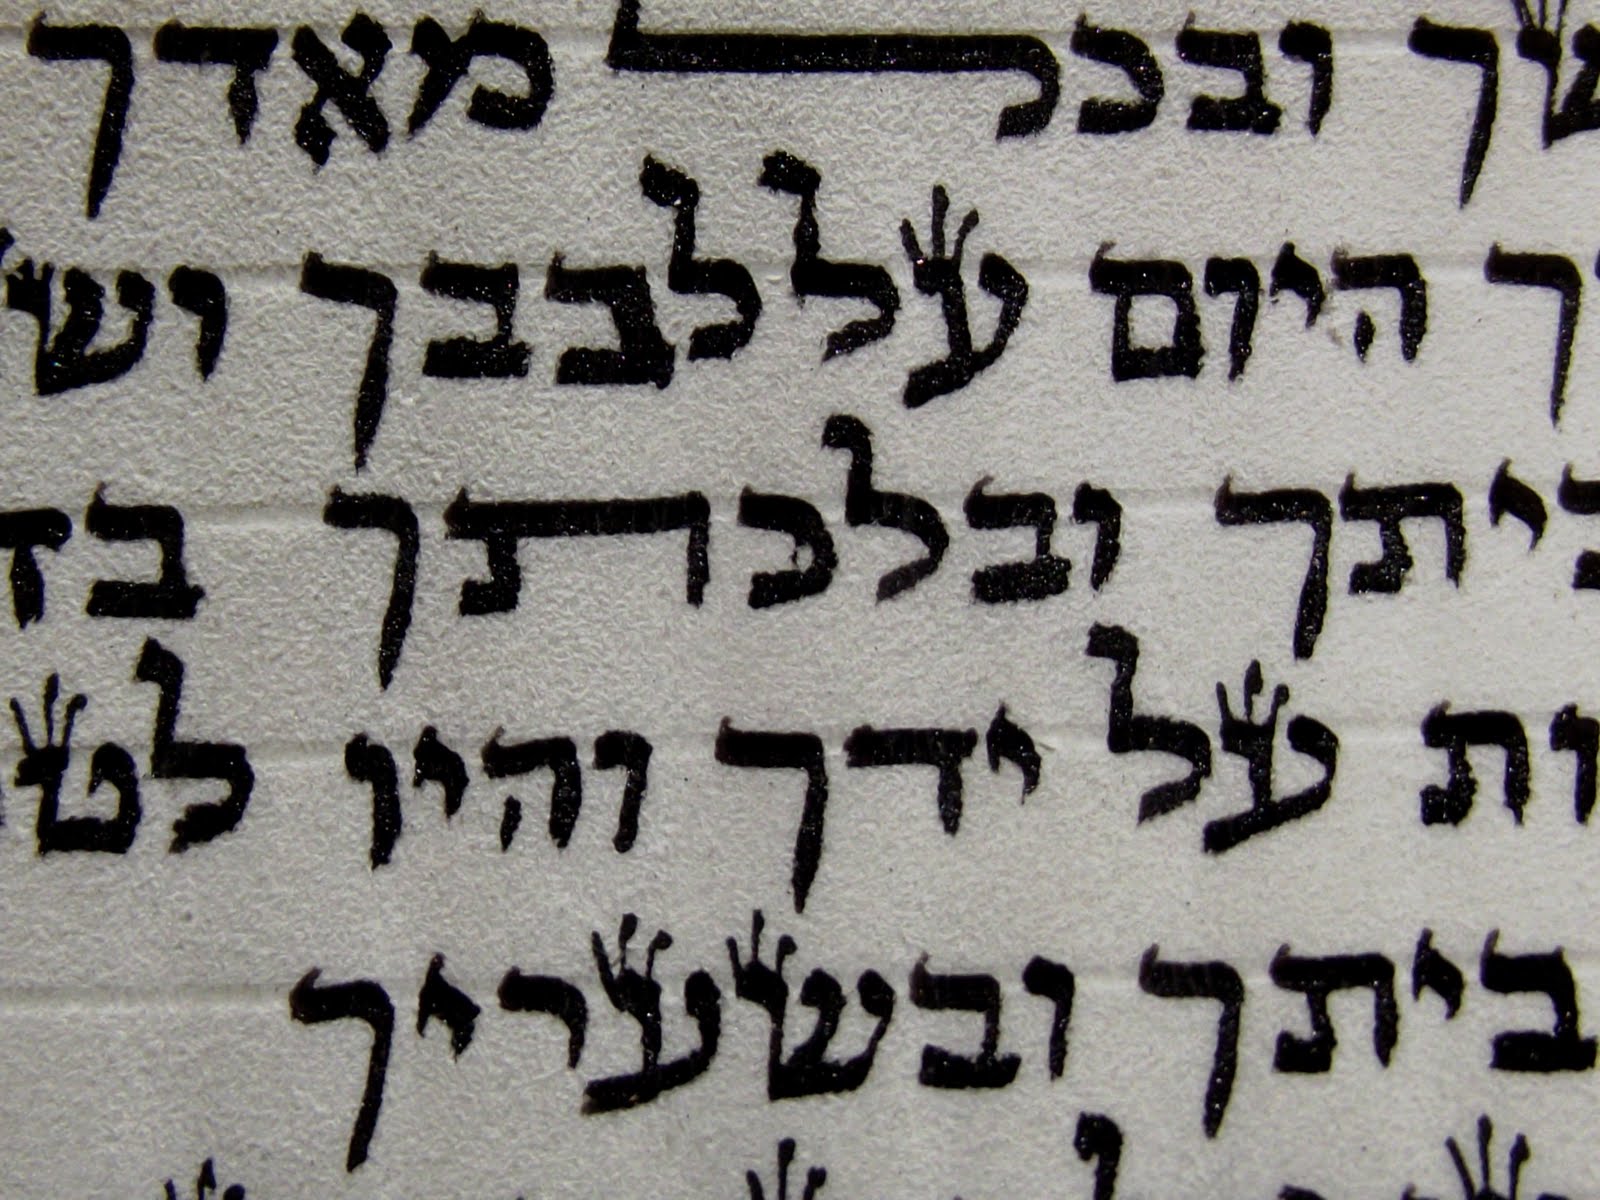 שך ובכל מאדך
ך היום על לבבך וש
ביתך ובלכתך בד
ות על ידך והיו לט
ביתך ובשעריך